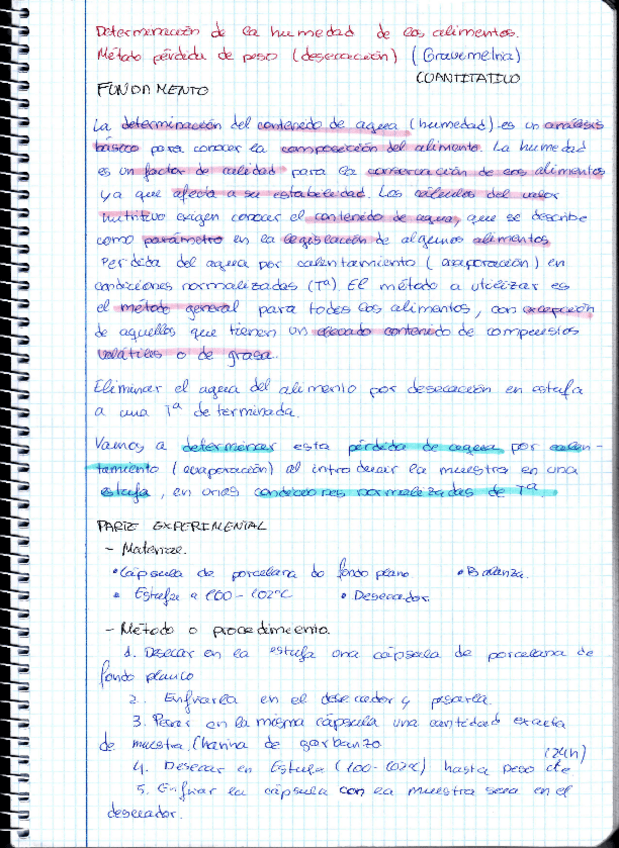 Determinación de la humedad de los alimentos.
Método pérdida de peso (desecación) (Gravimetría)
CUANTITATIVO
FUNDAMENTO
La determinación del contenido de agua (humedad) es un análisis
básico para conocer la composición del alimento. La humedad
es un factor de calidad para la conservación de los alimentos
ya que afecta a su estabilidad. Los cálculos del valor
nutritivo exigen conocer el contenido de agua, que se describe
como parámetro en la legislación de algunos alimentos.
Perdida del agua por calentamiento (evaporación) en
condiciones normalizadas (Tª). El método a utilizar es
el método general para todos los alimentos, con excepción
de aquellos que tienen un elevado contenido de compuestos
volátiles o de grasa.
Eliminar el agua del alimento por desecación en estufa
a una Tª determinada.
Vamos a determinar esta pérdida de agua por calen-
tamiento (evaporación) al introducir la muestra en una
estufa, en unas condiciones normalizadas de Tª.
PARTE EXPERIMENTAL
- Material.
• Cápsula de porcelana de fondo plano • Balanza.
• Estufa a 100-102ºC • Desecador.
- Método o procedimiento.
1. Desecar en la estufa una cápsula de porcelana de
fondo plano
2. Enfriarla en el desecador y pesarla.
3. Pesar en la misma cápsula una cantidad exacta
de muestra. (harina de garbanzo
4. Desecar en Estufa (100-102ºC) hasta peso cte (24h)
5. Enfriar la cápsula con la muestra seca en el
desecador.